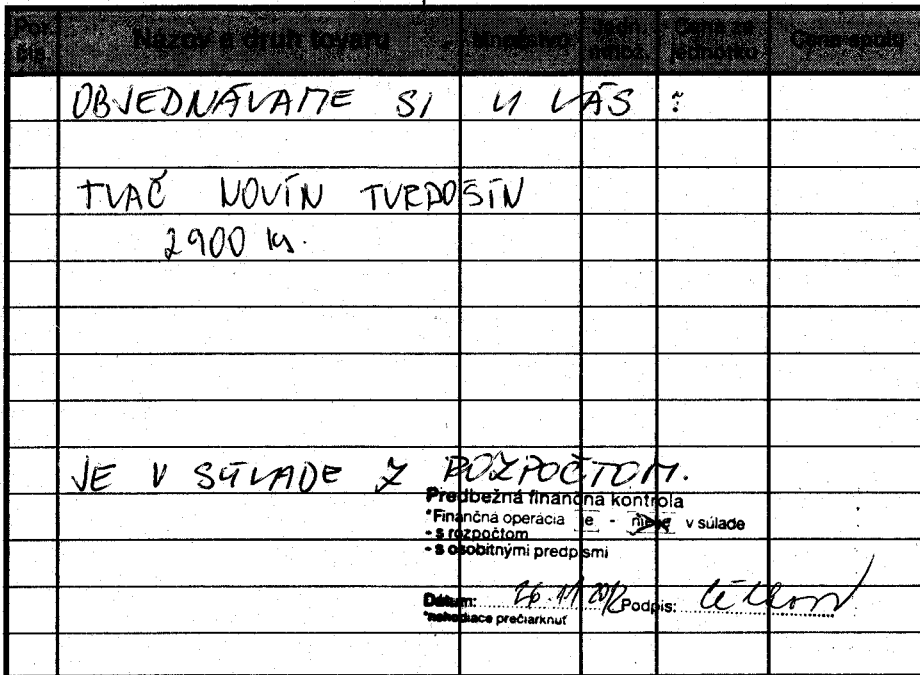 Por. čís. Názov a druh tovaru Množstvo Jedn. množ. Cena za jednotku Cena spolu
OBJEDNÁVAME SI U VÁS :
TLAČ NOVÍN TVRDOŠÍN
2900 ks.
JE V SÚLADE Z ROZPOČTOM.
Predbežná finančná kontrola
*Finančná operácia je - nie je v súlade
- s rozpočtom
- s osobitnými predpismi
Dátum: 26.11.2012 Podpis:
*nehodiace prečiarknuť